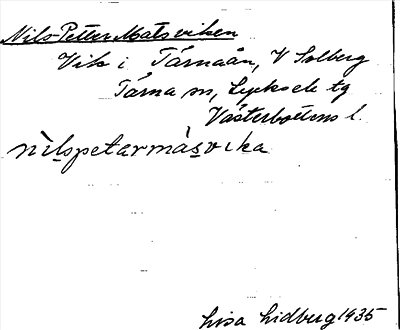 Nils-Petter-Matsviken
Vik i Tärnaån, V Solberg
Tärna sn, Lycksele tg
Västerbottens l.
nilspetarmàsvika
Lisa Lidberg 1935